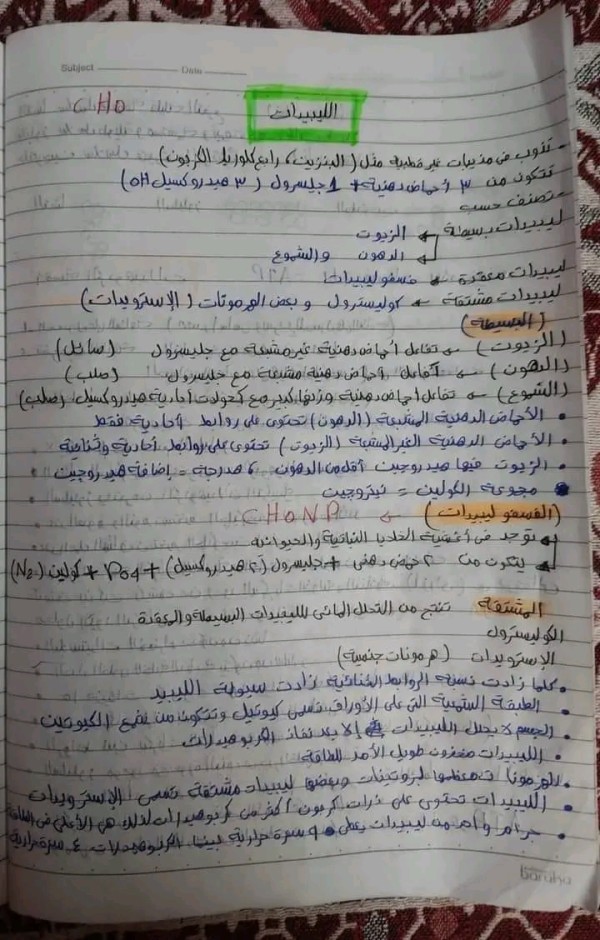 Subject Date
CHO
الليبيدات
- تذوب فى مذيبات غير قطبية مثل (البنزين، رابع كلوريد الكربون)
تتكون من ٣ أحماض دهنية + 1 جليسرول (٣ هيدروكسيل OH)
- تصنف حسب
ليبيدات بسيطة ← الزيوت
← الدهون والشموع
ليبيدات معقدة ← فسفوليبيدات
ليبيدات مشتقة ← كوليسترول و بعض الهرمونات (الإسترويدات)
(البسيطة)
(الزيوت) ← تفاعل أحماض دهنية غير مشبعة مع جليسرول (سائل)
(الدهون) ← تفاعل أحماض دهنية مشبعة مع جليسرول (صلب)
(الشموع) ← تفاعل أحماض دهنية وزنها كبير مع كحولات أحادية هيدروكسيل (صلب)
• الأحماض الدهنية المشبعة (الدهون) تحتوى على روابط أحادية فقط
• الأحماض الدهنية الغير المشبة (الزيوت) تحتوى على روابط أحادية وثنائية
• الزيوت فيها هيدروجين أقل من الدهون، هدرجة = إضافة هيدروجين
• مجموعة الكولين = نيتروجين
(الفسفوليبيدات) ← CHONP
← توجد فى أغشية الخلايا النباتية والحيوانية
← يتكون من ٢ حمض دهنى + جليسرول (٢ هيدروكسيل) + PO4 + كولين (N2)
المشتقة تنتج من التحلل المائى لليبيدات البسيطة والمعقدة
الكوليسترول
الإسترويدات (هرمونات جنسية)
• كلما زادت نسبة الروابط الثنائية زادت سيولة الليبيد
• الطبقة الشمعية التى على الأوراق تسمى كيوتيكل وتتكون من شمع الكيوتين
• الجسم لا يحلل الليبيدات إلا بعد نفاذ الكربوهيدرات
• الليبيدات مخزون طويل الأمد للطاقة
• الهرمونات معظمها بروتينات وبعضها ليبيدات مشتقة تسمى الإسترويدات
• الليبيدات تحتوى على ذرات كربون أكثر من كربوهيدرات لذلك هى الأعلى فى الطاقة
• جرام واحد من ليبيدات يعطى ٩ سعرة حرارية بينما الكربوهيدرات ٤ سعرة حرارية
baraha